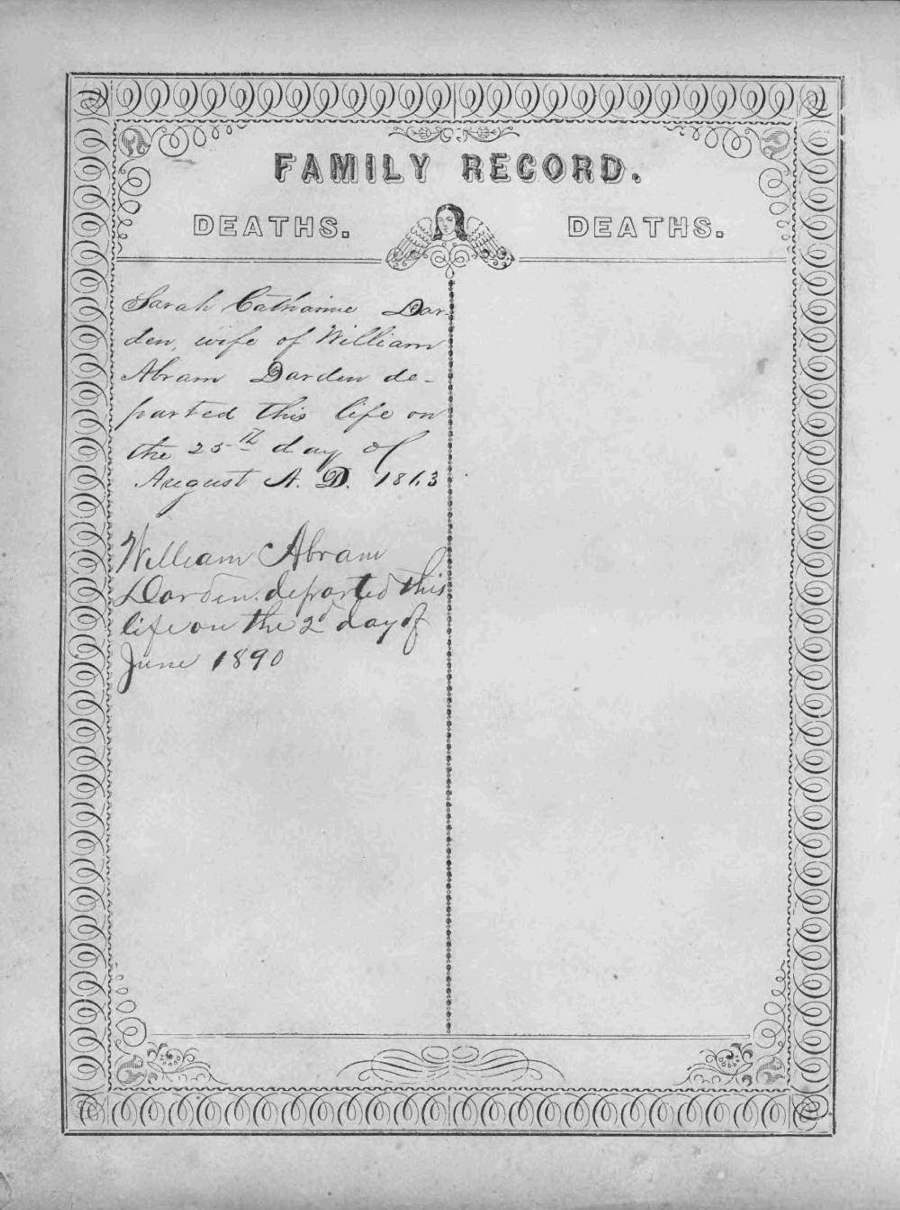 FAMILY RECORD.
DEATHS. DEATHS.
Sarah Catharine Dar
den, wife of William
Abram Darden de-
parted this life on
the 25th day of
August A. D. 1863
William Abram
Darden. departed this
life on the 2d day of
June 1890